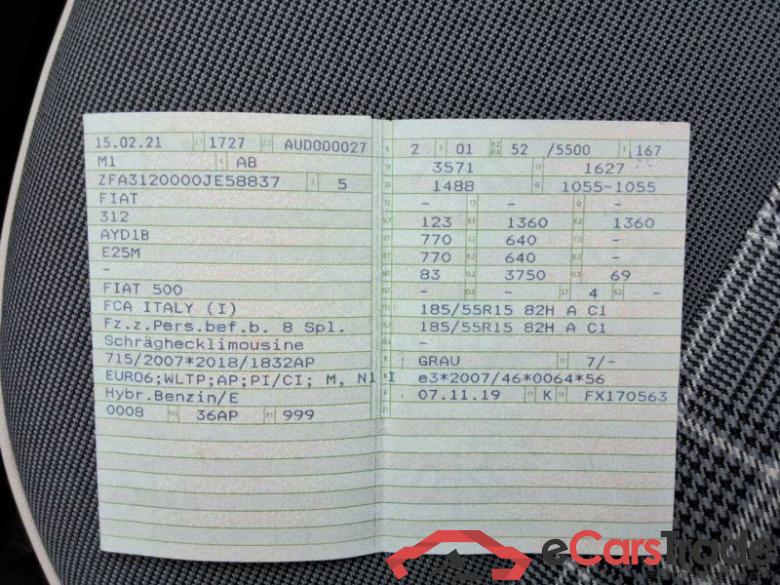 15.02.21 1727 AUD000027
M1 AB
ZFA3120000JE58837 5
FIAT
312
AYD1B
E25M
-
FIAT 500
FCA ITALY (I)
Fz.z.Pers.bef.b. 8 Spl.
Schräghecklimousine
715/2007*2018/1832AP
EURO6;WLTP;AP;PI/CI; M, N1 I
Hybr.Benzin/E
0008 36AP 999
2 01 52 /5500 167
3571 1627
1488 1055-1055
- - -
123 1360 1360
770 640 -
770 640 -
83 3750 69
- - 4 -
185/55R15 82H A C1
185/55R15 82H A C1
-
GRAU 7/-
e3*2007/46*0064*56
07.11.19 K FX170563
eCarsTrade